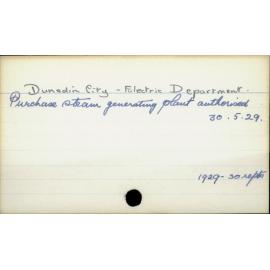 Dunedin City - Electric Department.
Purchase steam generating plant authorised
30.5.29.
1929-30 repts